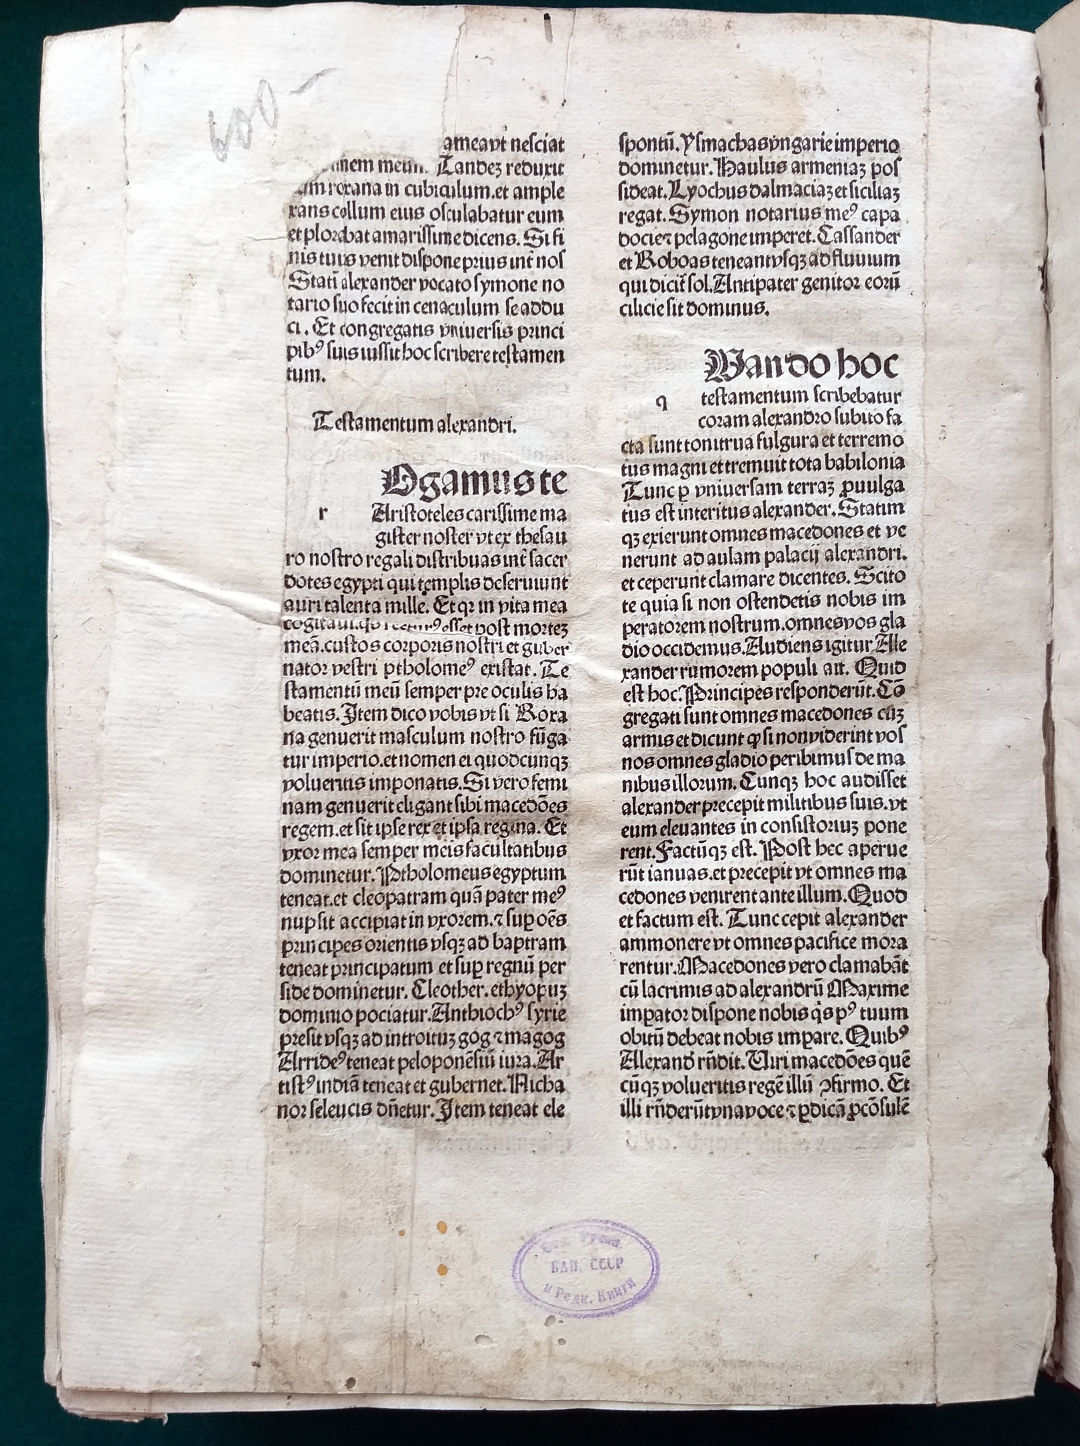 600-
ameavt nesciat
meum. Tandeꝫ reduxit
roxana in cubiculum.et ample
xans collum eius osculabatur eum
et plorabat amarissime dicens. Si fi
nis tuus venit dispone prius int̄ nos
Stati alexander vocato symone no
tario suo fecit in cenaculum se addu
ci. Et congregatis vniuersis princi
pibꝰ suis iussit hoc scribere testamen
tum.
Testamentum alexandri.
Ogamus te
r Aristoteles carissime ma
gister noster vt ex thesau
ro nostro regali distribuas int̄ sacer
dotes egypti qui templis deseruiunt
auri talenta mille. Et qꝛ in vita mea
cogitaui esset post morteꝫ
meā.custos corporis nostri et guber
nator vestri ptholomeꝰ existat. Te
stamentū meū semper pre oculis ha
beatis. Item dico vobis vt si Roxa
na genuerit masculum nostro fūga
tur imperio.et nomen ei quodcunqꝫ
volueritis imponatis. Si vero femi
nam genuerit eligant sibi macedōes
regem.et sit ipse rex et ipsa regina. Et
vxor mea semper meis facultatibus
dominetur. Ptholomeus egyptum
teneat.et cleopatram quā pater meꝰ
nupsit accipiat in vxorem.⁊ suꝑ oēs
principes orientis vsqꝫ ad baptram
teneat principatum et suꝑ regnū per
side dominetur. Cleother. ethyopuꝫ
dominio pociatur. Anthiochꝰ syrie
presit vsqꝫ ad introituꝫ gog ⁊ magog
Arrideꝰ teneat peloponēsiū iura. Ar
tistꝰ indiā teneat et gubernet. Nicha
nor seleucis dn̄etur. Item teneat ele
spontū. Ysmachas vngarie imperio
dominetur. Paulus armeniaꝫ pos
sideat. Lyochus dalmaciaꝫ et siciliaꝫ
regat. Symon notarius meꝰ capa
docie ⁊ pelagone imperet. Cassander
et Roboas teneant vsqꝫ ad fluuium
qui dicit̄ sol. Antipater genitor eorū
cilicie sit dominus.
Wando hoc
q testamentum scribebatur
coram alexandro subito fa
cta sunt tonitrua fulgura et terremo
tus magni et tremuit tota babilonia
Tunc ꝑ vniuersam terraꝫ ꝓuulga
tus est interitus alexander. Statim
qꝫ exierunt omnes macedones et ve
nerunt ad aulam palacij alexandri.
et ceperunt clamare dicentes. Scito
te quia si non ostendetis nobis im
peratorem nostrum.omnes vos gla
dio occidemus. Audiens igitur Ale
xander rumorem populi ait. Quid
est hoc. Principes responderūt. Cō
gregati sunt omnes macedones cūꝫ
armis et dicunt ꝙ si non viderint vos
nos omnes gladio peribimus de ma
nibus illorum. Cunqꝫ hoc audisset
alexander precepit militibus suis.vt
eum eleuantes in consistoriuꝫ pone
rent. Factūqꝫ est. Post hec aperue
rūt ianuas.et precepit vt omnes ma
cedones venirent ante illum. Quod
et factum est. Tunc cepit alexander
ammonere vt omnes pacifice mora
rentur. Macedones vero clamabāt
cū lacrimis ad alexandrū Maxime
imꝑator dispone nobis q̄s pꝰ tuum
obitū debeat nobis imꝑare. Quibꝰ
Alexand̄ rn̄dit. Uiri macedōes quē
cūqꝫ volueritis regē illū ꝯfirmo. Et
illi rn̄derūt vna voce ⁊ ꝑdicā ꝓcōsulē
БАН. СССР
и Редк. Книги